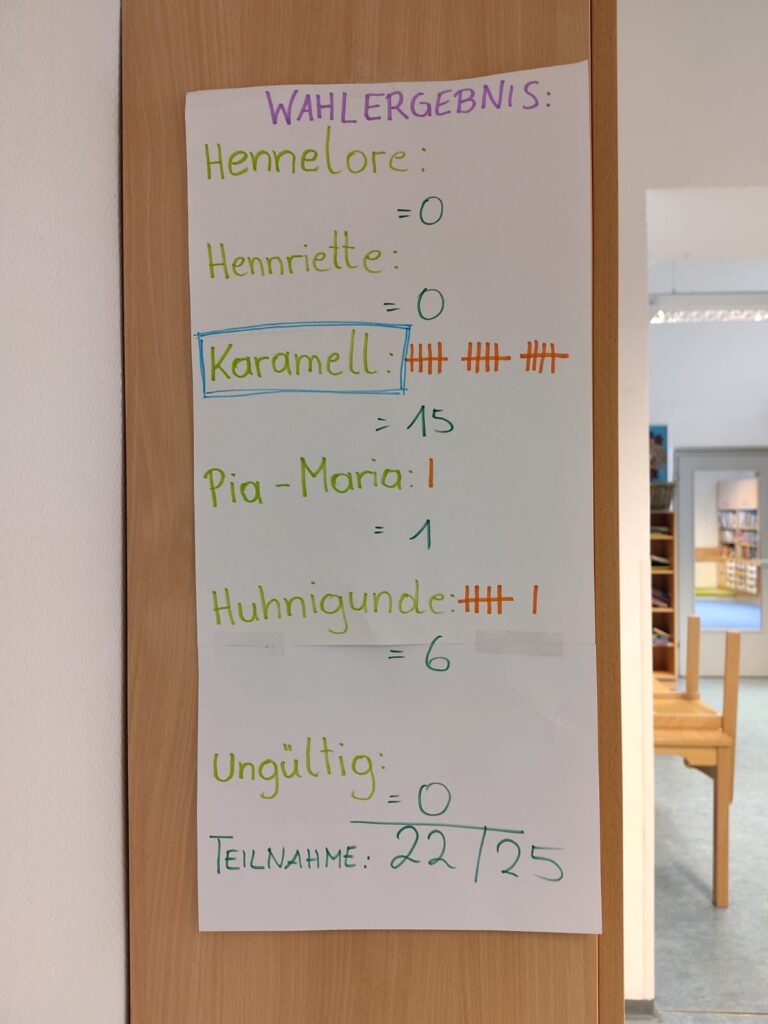 WAHLERGEBNIS:
Hennelore:
= 0
Hennriette:
= 0
Karamell:
= 15
Pia-Maria: |
= 1
Huhnigunde: |
= 6
Ungültig:
= 0
TEILNAHME: 22/25